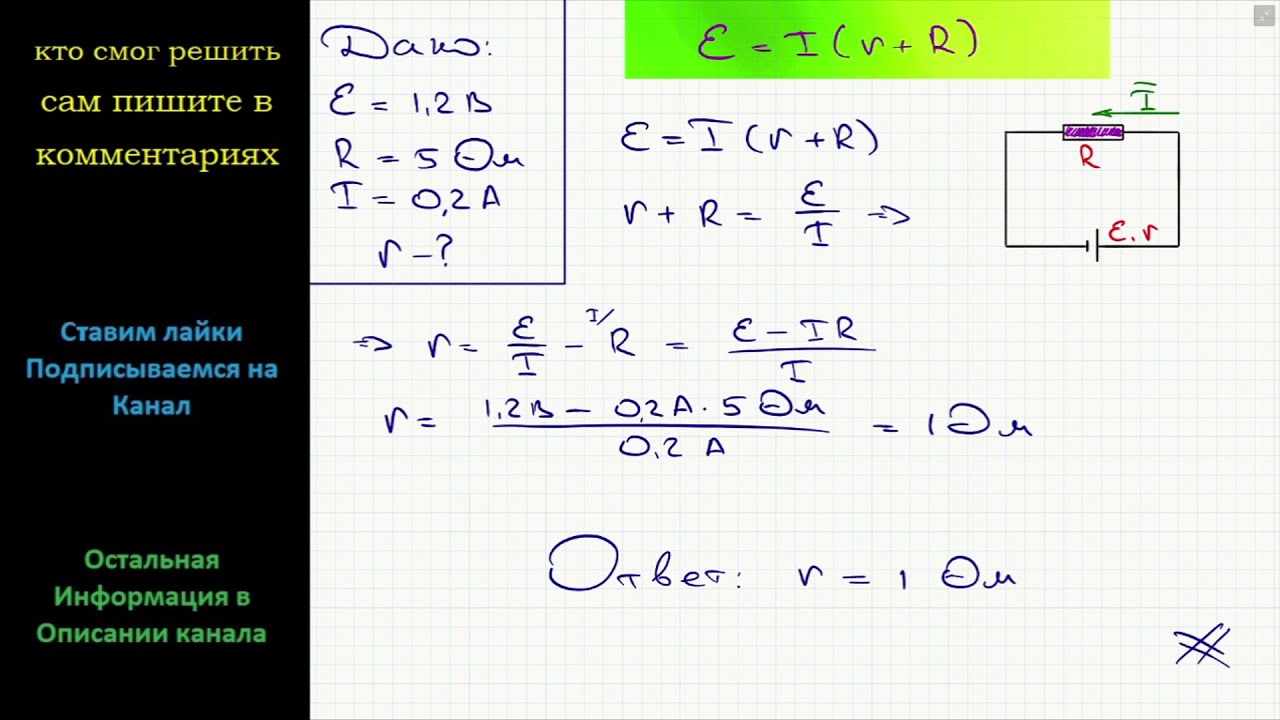 кто смог решить
сам пишите в
комментариях
Ставим лайки
Подписываемся на
Канал
Остальная
Информация в
Описании канала
Дано:
ℰ = 1,2 В
R = 5 Ом
I = 0,2 А
r – ?
ℰ = I (r + R)
ℰ = I (r + R)
r + R = ℰ/I =>
I
R
ℰ, r
=> r = ℰ/I – R I/ = (ℰ – IR)/I
r = (1,2 В – 0,2 А · 5 Ом)/(0,2 А) = 1 Ом
Ответ: r = 1 Ом